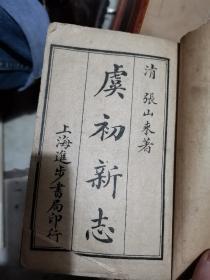 清 張山來著
虞初新志
上海進步書局印行